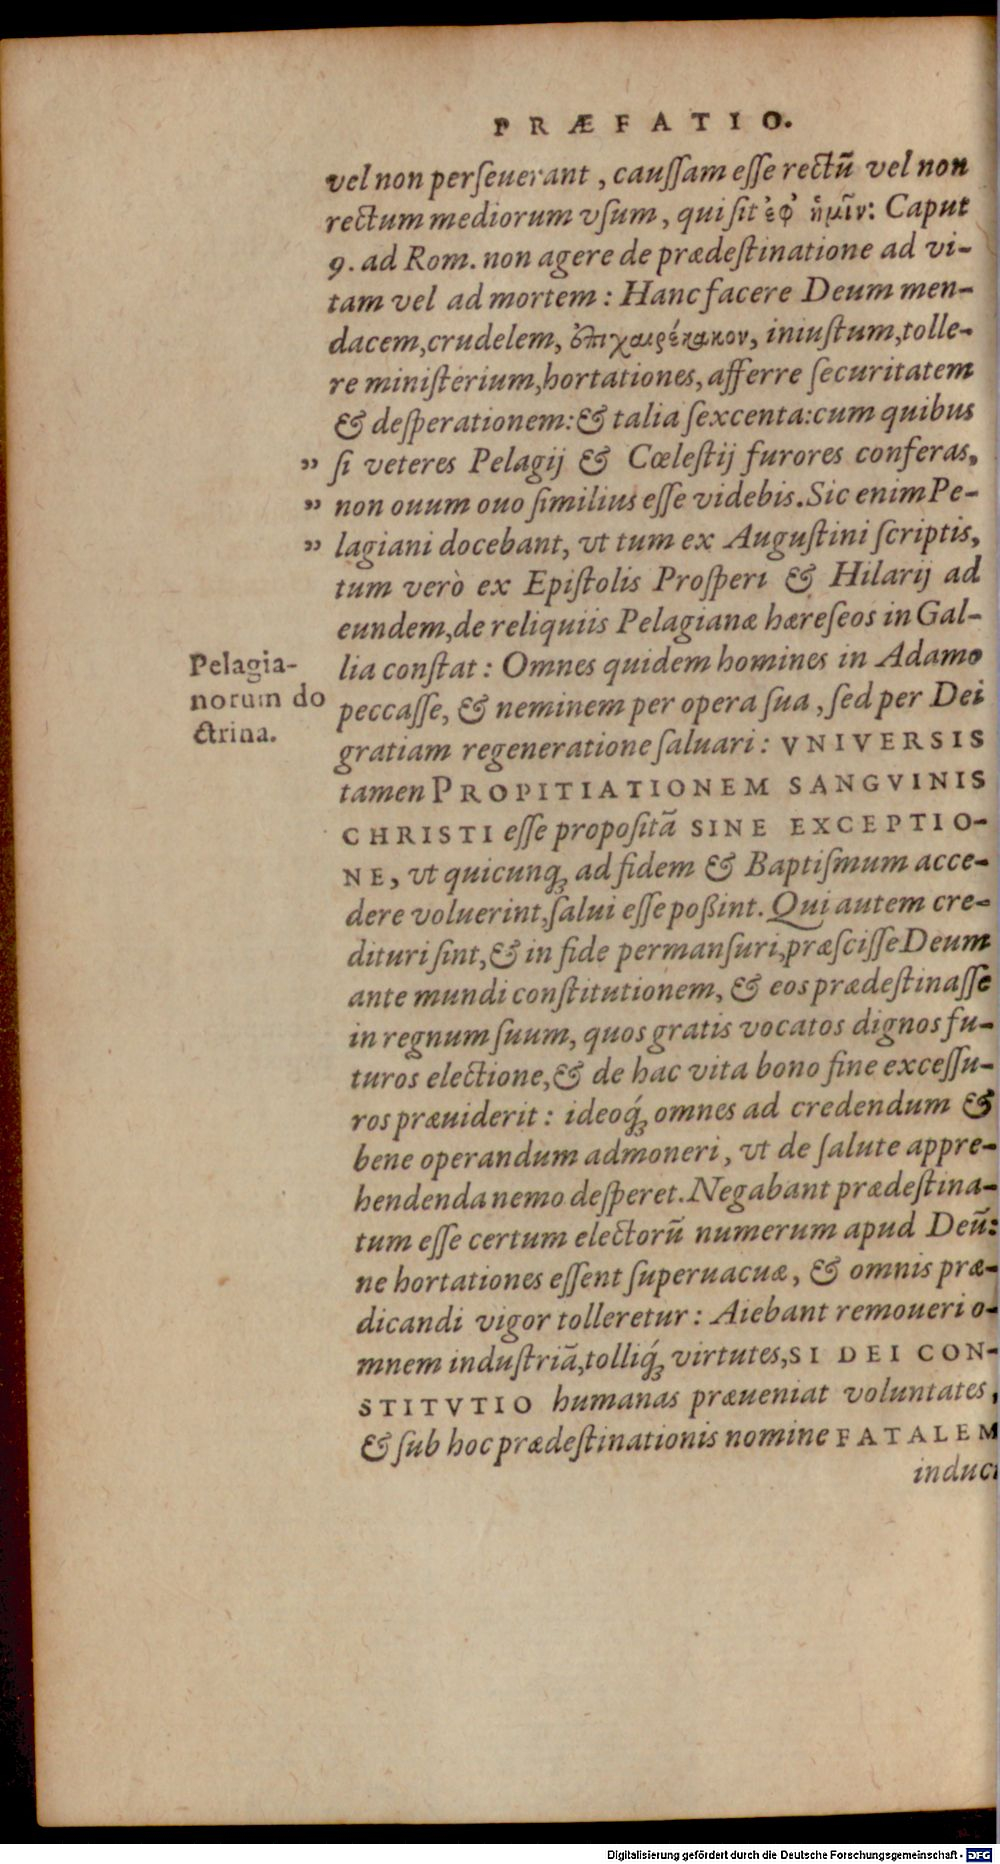 PRÆFATIO.
vel non perſeuerant, cauſſam eſſe rectū vel non
rectum mediorum vſum, qui ſit ἐφ' ἡμῖν: Caput
9. ad Rom. non agere de prædeſtinatione ad vi-
tam vel ad mortem: Hanc facere Deum men-
dacem, crudelem, ἐπιχαιρέκακον, iniuſtum, tolle-
re miniſterium, hortationes, afferre ſecuritatem
& deſperationem: & talia ſexcenta: cum quibus
" ſi veteres Pelagij & Cœleſtij furores conferas,
" non ouum ouo ſimilius eſſe videbis. Sic enim Pe-
" lagiani docebant, vt tum ex Auguſtini ſcriptis,
tum verò ex Epiſtolis Proſperi & Hilarij ad
eundem, de reliquiis Pelagianæ hæreſeos in Gal-
Pelagia-
norum do
ctrina.
lia conſtat: Omnes quidem homines in Adamo
peccaſſe, & neminem per opera ſua, ſed per Dei
gratiam regeneratione ſaluari: VNIVERSIS
tamen PROPITIATIONEM SANGVINIS
CHRISTI eſſe propoſitā SINE EXCEPTIO-
NE, vt quicunq; ad fidem & Baptiſmum acce-
dere voluerint, ſalui eſſe poßint. Qui autem cre-
dituri ſint, & in fide permanſuri, præſciſſe Deum
ante mundi conſtitutionem, & eos prædeſtinaſſe
in regnum ſuum, quos gratis vocatos dignos fu-
turos electione, & de hac vita bono fine exceſſu-
ros præuiderit: ideoq́; omnes ad credendum &
bene operandum admoneri, vt de ſalute appre-
hendenda nemo deſperet. Negabant prædeſtina-
tum eſſe certum electorū numerum apud Deū:
ne hortationes eſſent ſuperuacuæ, & omnis præ-
dicandi vigor tolleretur: Aiebant remoueri o-
mnem induſtriā, tolliq́; virtutes, SI DEI CON-
STITVTIO humanas præueniat voluntates,
& ſub hoc prædeſtinationis nomine FATALEM
induci
Digitalisierung gefördert durch die Deutsche Forschungsgemeinschaft - DFG